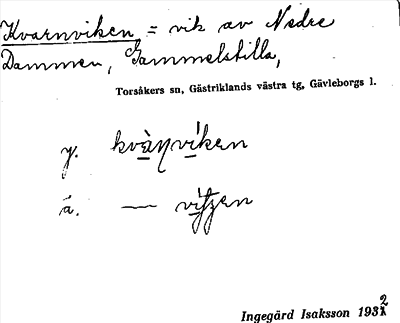 Kvarnviken = vik av Nedre
Dammen, Gammelstilla,
Torsåkers sn, Gästriklands västra tg, Gävleborgs l.
y. kvàṇvíken
ä. — 
Ingegärd Isaksson 1932